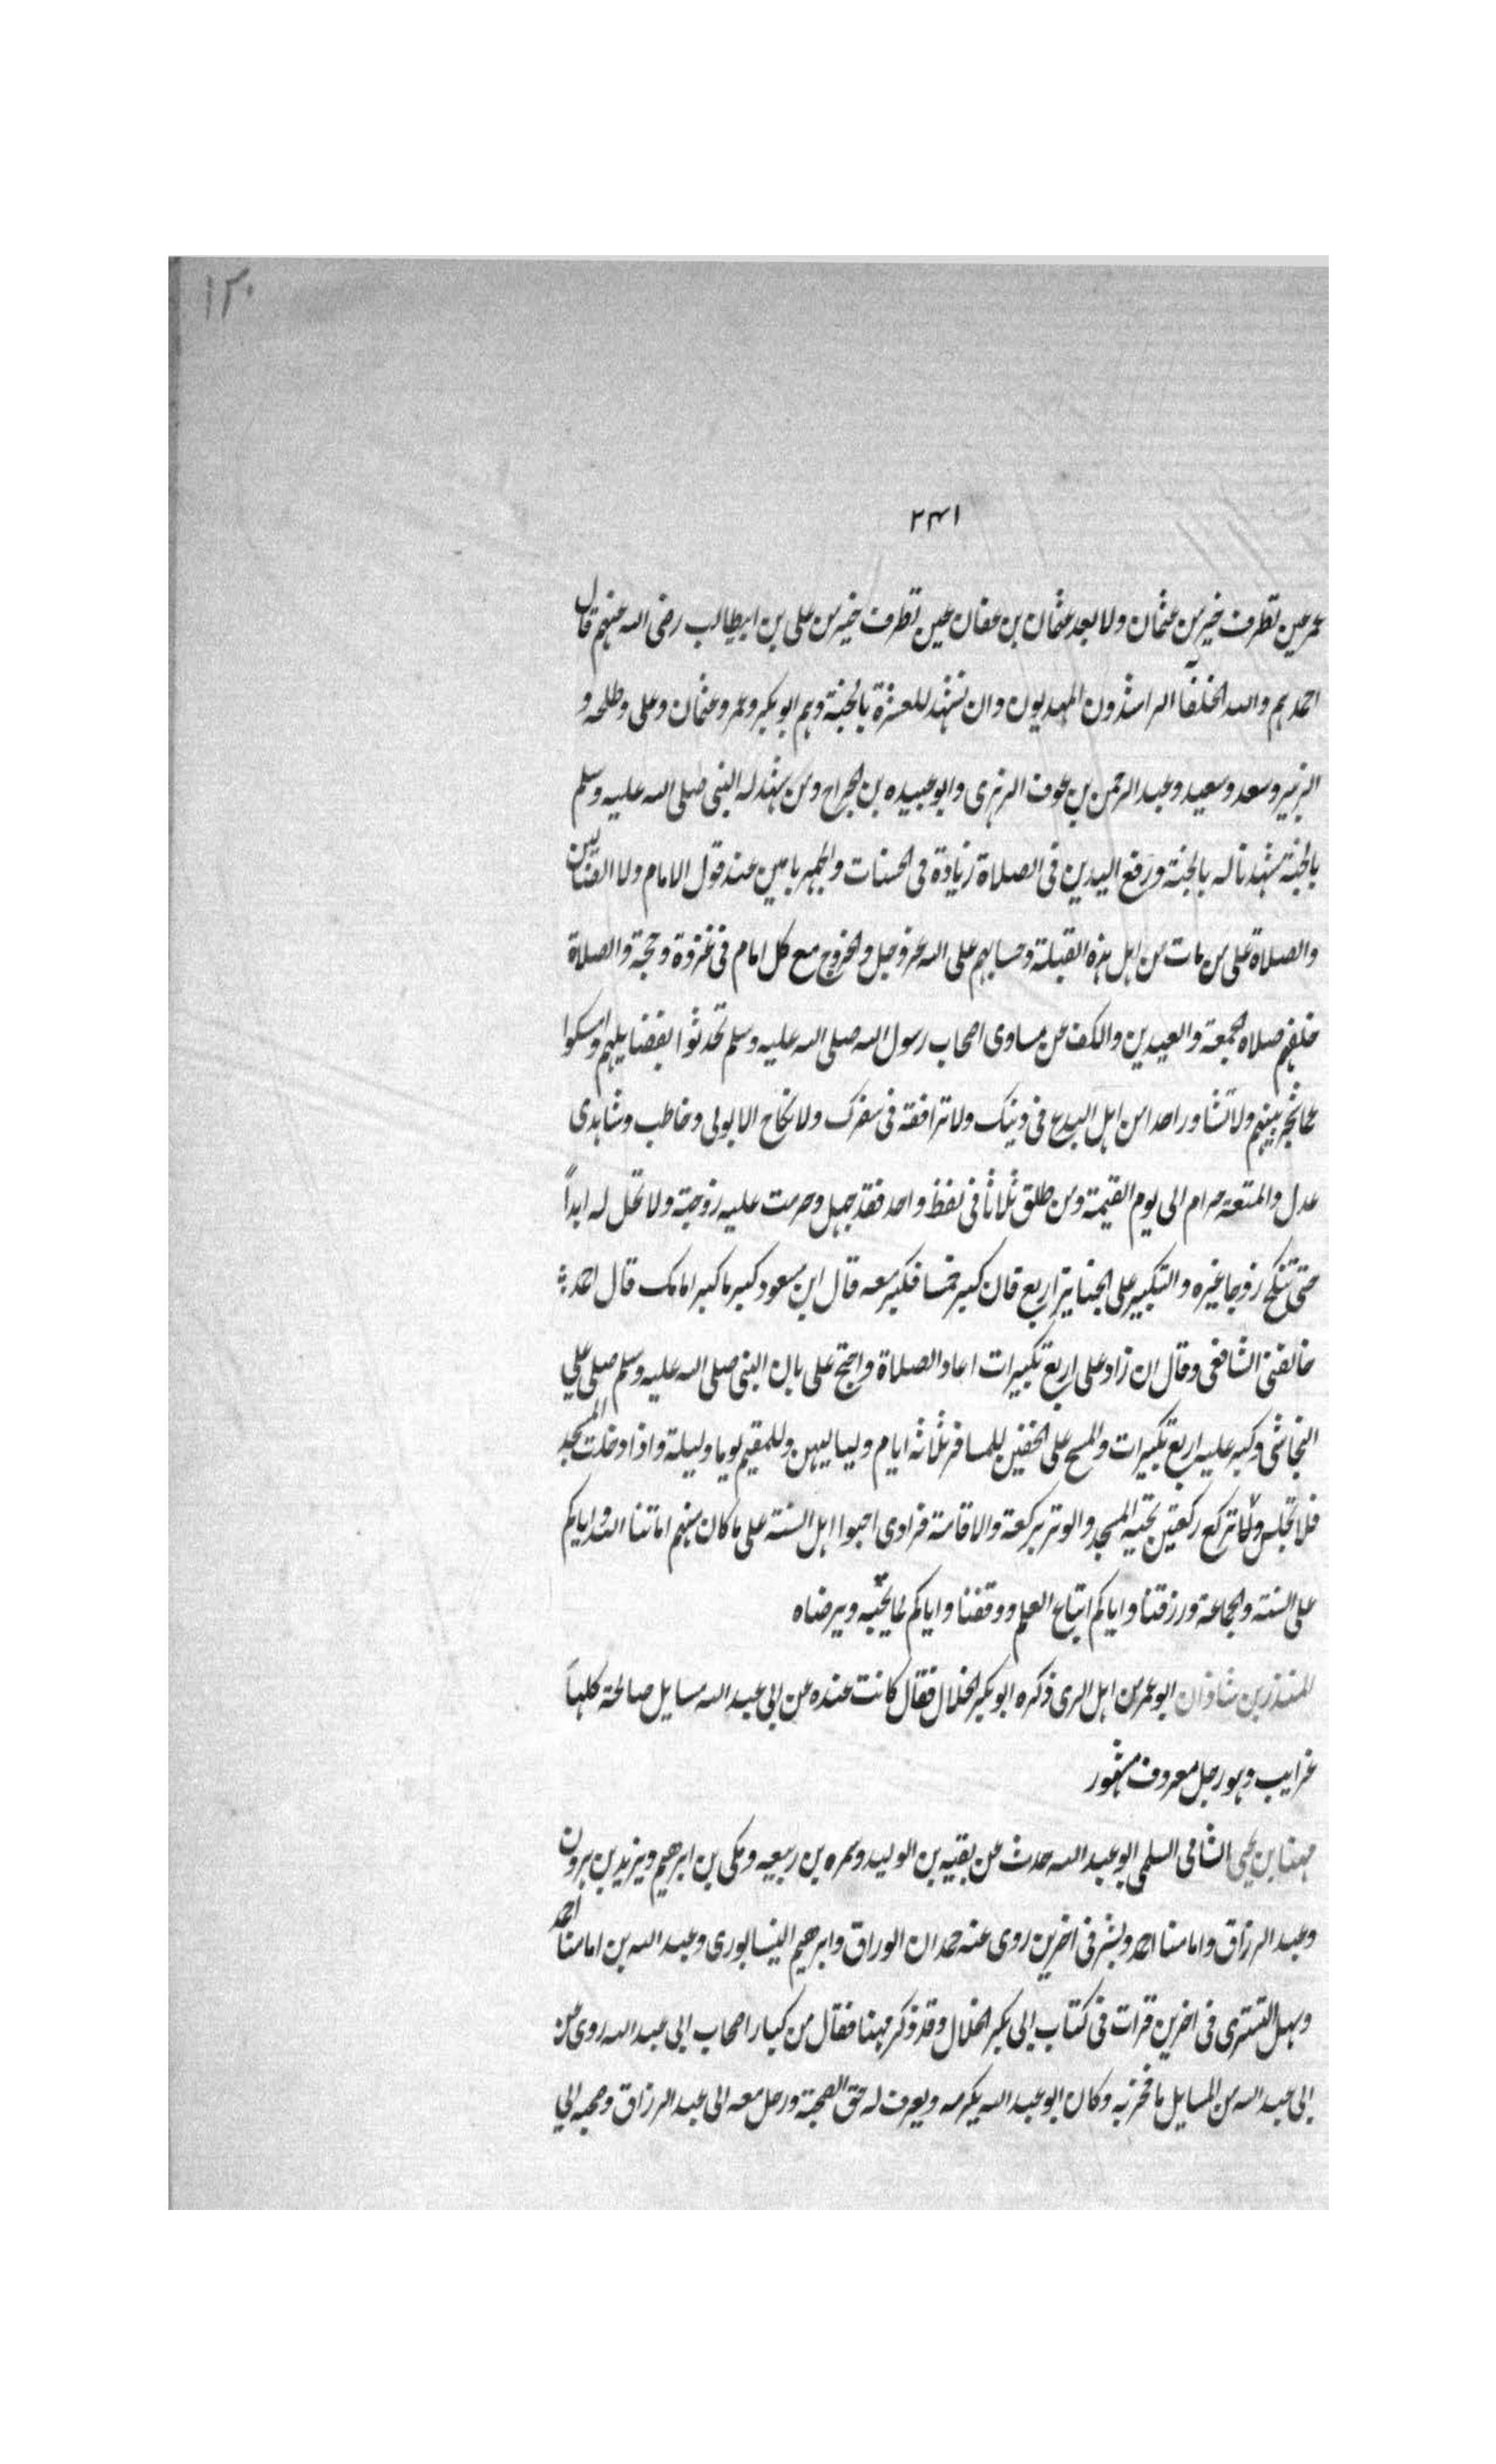 ١٢٠
٢٣١
عمر عين تطرف خير من عثمان ولا بعد عثمان بن عفان عين تطرف خير من علي بن ابيطالب رضى الله عنهم قال
احمد هم والله الخلفآ الراشدون المهديون وان نشهد للعشرة بالجنة وهم ابو بكر وعمر وعثمان وعلى وطلحه و
الزبير وسعد وسعيد وعبد الرحمن بن عوف الزهرى وابو عبيده بن الجراح ومن شهد له النبى صلى الله عليه وسلم
بالجنة شهدنا له بالجنة ورفع اليدين فى الصلاة زيادة فى الحسنات والجهر بامين عند قول الامام ولا الضالين
والصلاة على من مات من اهل هذه القبلة وحسابهم على الله عز وجل والخروج مع كل امام فى غزوة وحجة والصلاة
خلفهم صلاه الجمعة والعيدين والكف عن مساوى اصحاب رسول الله صلى الله عليه وسلم تحدثوا بفضايلهم وامسكوا
عما شجر بينهم ولا تشاور احدا من اهل البدع فى دينك ولا ترافقه فى سفرك ولا نكاح الا بولى وخاطب وشاهدى
عدل والمتعة حرام الى يوم القيمة ومن طلق ثلاثا فى لفظ واحد فقد جهل وحرمت عليه زوجة ولا تحل له ابداً
حتى تنكح زوجا غيره والتكبير على الجنايز اربع فان كبر خمسا فكبر معه قال ابن مسعود كبر ما كبر امامك قال احمد
خالفنى الشافعى وقال ان زاد على اربع تكبيرات اعاد الصلاة واحتج على بان النبى صلى الله عليه وسلم صلى على
النجاشى وكبر عليه اربع تكبيرات والمسح على الخفين للمسافر ثلاثه ايام ولياليهن وللمقيم يوما وليلة واذا دخلت المسجد
فلا تجلس حتى تركع ركعتين تحية المسجد والوتر بركعة والاقامة فرادى احبوا اهل السنة على ما كان منهم اماتنا الله واياكم
على السنة والجماعة ورزقنا واياكم اتباع العلم ووفقنا واياكم لما يحبه ويرضاه
المنذر بن شاذان ابو عمر من اهل الرى ذكره ابو بكر الخلال فقال كانت عنده عن ابى عبد الله مسايل صالحة كلها
غرايب وهو رجل معروف مشهور
مهنا بن يحيى الشامى السلمى ابو عبد الله حدث عن بقيه بن الوليد وضمره بن ربيعه ومكى بن ابرهيم ويزيد بن هرون
وعبد الرزاق وامامنا احمد وبشر فى اخرين روى عنه حمدان الوراق وابرهيم النيسابورى وعبد الله بن امامنا احمد
وسهل التسترى فى اخرين قرات فى كتاب ابى بكر الخلال وقد ذكر مهنا فقال من كبار اصحاب ابى عبد الله روى عن
ابى عبد الله من المسايل ما فخر به وكان ابو عبد الله يكرمه ويعرف له حق الصحبة ورحل معه الى عبد الرزاق وصحبه الى